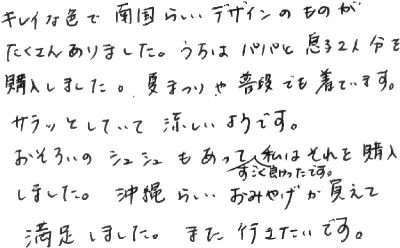 キレイな色で南国らしいデザインのものが
たくさんありました。うちはパパと息子2人分を
購入しました。夏まつりや普段でも着ています。
サラッとしていて涼しいようです。
おそろいのシュシュもあってすごく良かったです。私はそれを購入
しました。沖縄らしいおみやげが買えて
満足しました。また行きたいです。